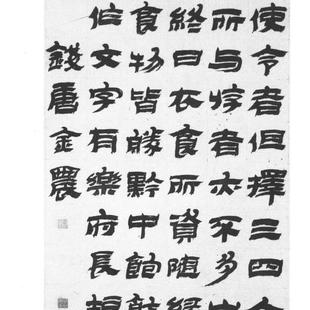 使令者但擇三四
所与游者亦不多
終日衣食所資随
食物皆勝黔中飽
作文字有樂府長
錢唐金農